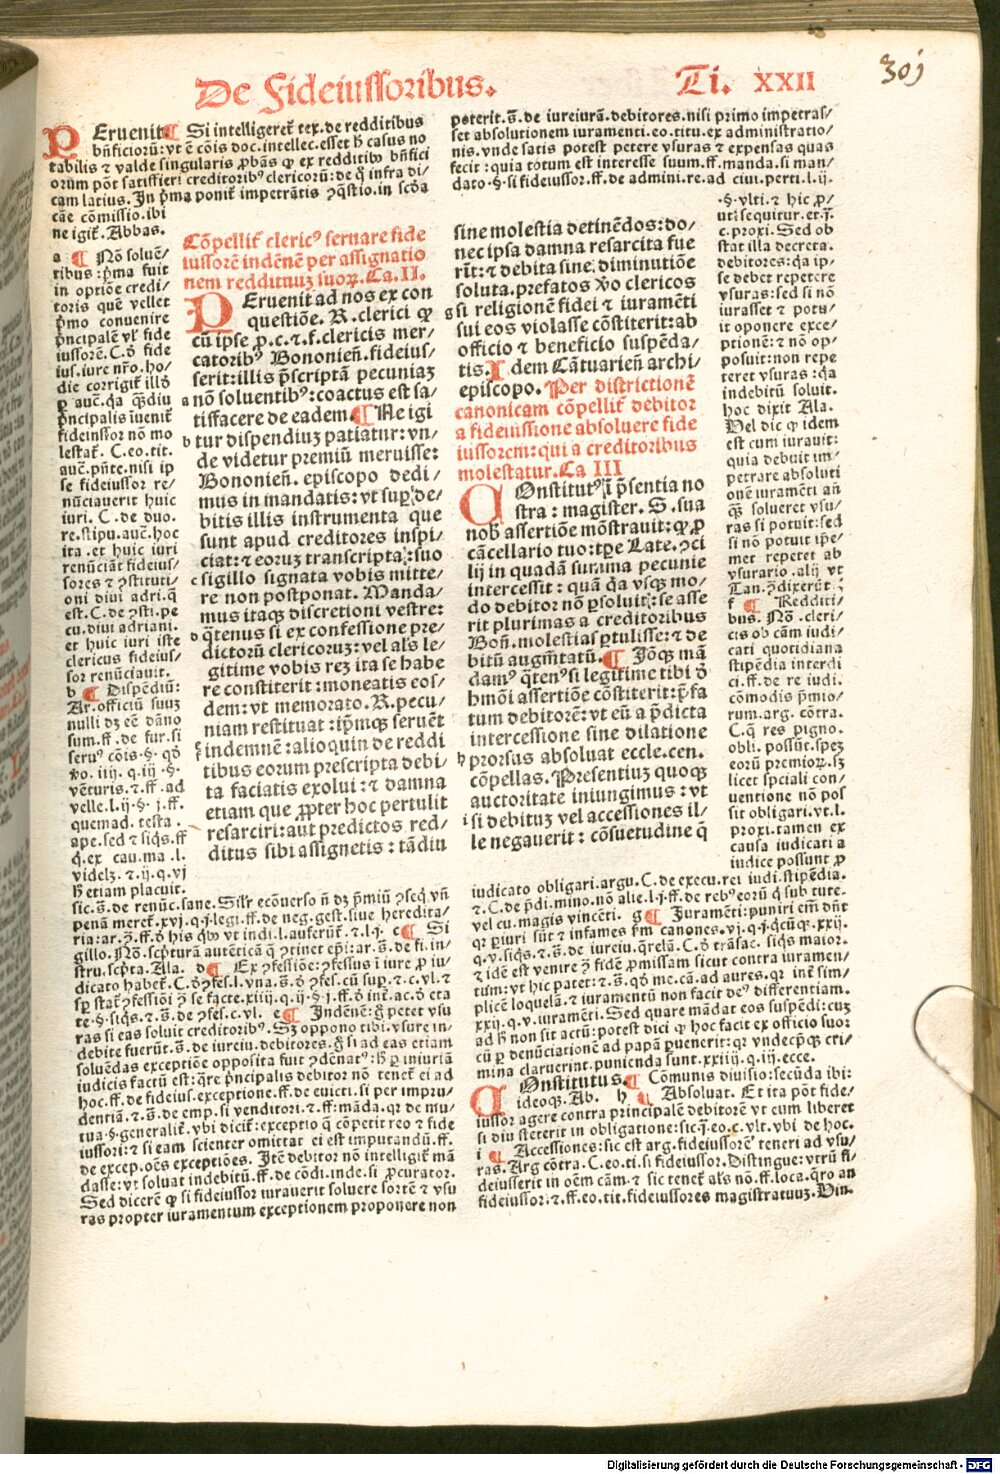 De Fideiussoribus.
Ti. XXII
301
PEruenit ¶ Si intelligeret̄ tex. de redditibus
bn̄ficiorū: vt ē cōis doc. intellec. esset h̄ casus no
tabilis ⁊ valde singularis ꝓbās ꝙ ex redditib⁹ bn̄fici
orum pōt satisfieri creditorib⁹ clericorū: de q̄ infra di/
cam latius. In p̄ma ponit̄ impetratīs ꝯq̄stio. in scḋa
cāe cōmissio. ibi
ne igit̄. Abbas.
a ¶ Nō soluē/
tibus: p̄ma fuit
in optiōe credi/
toris quē vellet
p̄mo conuenire
p̄ncipalē vl̄ fide
iussorē. C. ō fide
ius. iure nr̄o. ho/
die corrigit̄ illō
ꝑ auē. q̄a q̄ʒdiu
p̄ncipalis īuenit̄
fideiussor nō mo
lestat̄. C. eo. tit.
auē. p̄nte. nisi ip
se fideiussor re/
nūciauerit huic
iuri. C. de duo.
re. stipu. auē. hoc
ita. et huic iuri
renūciāt fideius/
sores ⁊ ꝯstituti/
oni diui adri. q̄
est. C. de ꝯsti. pe
cu. diui adriani.
et huic iuri iste
clericus fideius/
sor renūciauit.
b ¶ Dispēdiū:
Ar. officiū suuʒ
nulli dʒ eē dāno
sum. ff. de fur. si
seru⁹ cōis. §. qḋ
v̊o. iiij. q. iij §.
vēturis. ⁊. ff. ad
velle. l. ij. §. j. ff.
quemad. testa.
ape. sed ⁊ siqs. ff
q̄. ex cau. ma. l.
videlʒ. ⁊. ij. q. vj
h̄ etiam placuit.
sic. s̄. de renūc. sane. Sil̄r ecōuerso n̄ dʒ p̄miū ꝯseq̄ vn̄
penā meret̄. xvj. q. j. legi. ff. de neg. gest. siue heredita/
ria: ar. ꝫ. ff. ō his q̄b⁹ vt indi. l. auferūt̄. ⁊. l. j. c ¶ Si
gillo. Nō. scp̄turā autēticā q̄ ꝯtinet ep̄i: ar. s̄. de fi. in/
stru. scp̄ta. Ala. d ¶ Ex ꝯfessiōe: ꝯfessus ī iure ꝓ iu/
dicato habet̄. C. ō ꝯfes. l. vna. s̄. ō ꝯfes. cū sup̄. ⁊. c. vl. ⁊
sꝑ stat̄ ꝯfessiōi ꝫ se facte. xiiij. q. ij. §. j. ff. ō int̄. ac. ō eta
te. §. siqs. ⁊. s̄. de ꝯfes. c. vl. e ¶ Indēnē: ḡ petet vsu
ras si eas soluit creditorib⁹. Sʒ oppono tibi. vsure in/
debite fuerūt. s̄. de iureiu. debitores. ḡ si ad eas etiam
soluēdas exceptiōe opposita fuit ꝯdēnat⁹: h̄ ꝑ iniuriā
iudicis factū est: q̄re p̄ncipalis debitor nō tenet̄ ei ad
hoc. ff. de fideius. exceptione. ff. de euicti. si per impru/
dentiā. ⁊. s̄. de emp. si venditori. ⁊. ff. māda. qr̄ de mu/
tua. §. generalit̄. vbi dicit̄: exceptio q̄ cōpetit reo ⁊ fide
iussori: ⁊ si eam scienter omittat ei est imputandū. ff.
de excep. oēs exceptiōes. Itē debitor nō intelligit̄ mā
dasse: vt soluat indebitū. ff. de cōdi. inde. si ꝓcurator.
Sed dicerē ꝙ si fideiussor iurauerit soluere sortē ⁊ vsu
ras propter iuramentum exceptionem proponere non
Cōpellit̄ cleric⁹ seruare fide
iussorē indēnē per assignatio
nem reddituuʒ suoꝝ. Ca. II.
PEruenit ad nos ex con
questiōe. R. clerici ꝙ
cū ipse ꝓ. c. ⁊. f. clericis mer/
catorib⁹ Bononien̄. fideius/
serit: illis p̄scriptā pecuniaʒ
a nō soluentib⁹: coactus est sa/
tisfacere de eadem. ¶ Ne igi
b tur dispendiuʒ patiatur: vn/
de videtur premiū meruisse:
Bononien̄. episcopo dedi/
mus in mandatis: vt suꝑ de/
bitis illis instrumenta que
sunt apud creditores inspi/
ciat: ⁊ eoruʒ transcripta: suo
c sigillo signata vobis mitte/
re non postponat. Manda/
mus itaqʒ discretioni vestre:
d q̄tenus si ex confessione pre/
dictorū clericoruʒ: vel al̄s le/
gitime vobis reʒ ita se habe
re constiterit: moneatis eos/
dem: vt memorato. R. pecu/
niam restituat: ip̄mqʒ seruēt
e indemnē: alioquin de reddi
f tibus eorum prescripta debi/
ta faciatis exolui: ⁊ damna
etiam que ꝓpter hoc pertulit
resarciri: aut predictos red/
ditus sibi assignetis: tādiu
poterit. s̄. de iureiurā. debitores. nisi primo impetras/
set absolutionem iuramenti. eo. titu. ex administratio/
nis. vnde satis potest petere vsuras ⁊ expensas quas
fecit: quia totum est interesse suum. ff. manda. si man/
dato. §. si fideiussor. ff. de admini. re. ad ciui. perti. l. ij.
sine molestia detinēdos: do/
nec ipsa damna resarcita fue
rīt: ⁊ debita sine diminutiōe
soluta. prefatos v̊o clericos
g si religionē fidei ⁊ iuramēti
sui eos violasse cōstiterit: ab
officio ⁊ beneficio suspēda/
tis. Idem Cātuarien̄ archi/
episcopo. Per districtionē
canonicam cōpellit̄ debitor
a fideiussione absoluere fide
iussorem: qui a creditoribus
molestatur. Ca III
COnstitut⁹ ī p̄sentia no
stra: magister. S. sua
nob̄ assertiōe mōstrauit: ꝙ ꝓ
cācellario tuo: tꝑe Late. ꝯci
lij in quadā summa pecunie
intercessit: quā q̄a vsqʒ mo/
do debitor nō ꝑsoluit: se asse
rit plurimas a creditoribus
Bon̄. molestias ꝑtulisse: ⁊ de
bitū augm̄tatū. ¶ Iōqʒ mā
dam⁹ q̄ten⁹ si legitime tibi ō
hmōi assertiōe cōstiterit: p̄fa
tum debitorē: vt eū a p̄dicta
intercessione sine dilatione
h prorsus absoluat eccle. cen.
cōpellas. Presentiuʒ quoqʒ
auctoritate iniungimus: vt
i si debituʒ vel accessiones il/
le negauerit: cōsuetudine q̄
§. vlti. ⁊ hic ꝓ/
ut: sequitur. er. ī.
c. proxi. Sed ob
stat illa decreta.
debitores: q̄a ip/
se debet repetere
vsuras: sed si nō
iurasset ⁊ potu/
it oponere exce/
ptionē: ⁊ nō op/
posuit: non repe
teret vsuras: q̄a
indebitū soluit.
hoc dixit Ala.
Vel dic ꝙ idem
est cum iurauit:
quia debuit im/
petrare absoluti
onē iuramēti an̄
q̄ʒ solueret vsu/
ras si potuit: sed
si nō potuit īpe/
met repetet ab
vsurario. alij vt
Tan. ꝯdixerūt.
f ¶ Redditi/
bus. Nō. cleri/
cis ob cām iudi/
cati quotidiana
stipēdia interdi
ci. ff. de re iudi.
cōmodis p̄mio/
rum. arg. cōtra.
C. q̄ res pigno.
obli. possūt. speʒ
eorū premioꝝ. sʒ
licet spēiali con/
uentione nō pos
sit obligari. vt. l.
proxi. tamen ex
causa iudicati a
iudice possunt ꝓ
iudicato obligari. argu. C. de execu. rei iudi. stipēdia.
⁊. C. de p̄di. mino. nō alie. l. j. ff. de reb⁹ eorū q̄ sub tute.
vel cu. magis vincēti. g ¶ Iuramēti: puniri em̄ dn̄t
qr̄ ꝑiuri sūt ⁊ infames ẜm canones. vj. q. j. qcūqʒ. xxij.
q. v. siqs. ⁊. s̄. de iureiu. q̄relā. C. ō trāsac. siqs maior.
⁊ idē est venire ꝫ fidē ꝓmissam sicut contra iuramen/
tum: vt hic patet: ⁊. s̄. qō me. cā. ad aures. qr̄ int̄ sim/
plicē loquelā. ⁊ iuramentū non facit de⁹ differentiam.
xxij. q. v. iuramēti. Sed quare mādat eos suspēdi: cuʒ
ad h̄ non sit actū: potest dici ꝙ hoc facit ex officio suo:
cū ꝑ denūciationē ad papā ꝑuenerit: qr̄ vndecp̄qʒ cri/
mina claruerint, punienda sunt. xxiiij. q. iij. ecce.
COnstitutus. ¶ Cōmunis diuisio: secūda ibi:
ideoqʒ. Ab. h ¶ Absoluat. Et ita pōt fide/
iussor agere contra principalē debitorē vt eum liberet
si diu steterit in obligatione: sic. j. eo. c. vlt. vbi de hoc.
i ¶ Accessiones: sic est arg. fideiussorē teneri ad vsu/
ras. Arg cōtra. C. eo. ti. si fideiussor. Distingue: vtrū fi/
deiusserit in oēm cām. ⁊ sic tenet̄ al̄s nō. ff. loca. q̄ro an
fideiussor: ⁊. ff. eo. tit. fideiussores magistratuuʒ. Vin.
Digitalisierung gefördert durch die Deutsche Forschungsgemeinschaft - DFG